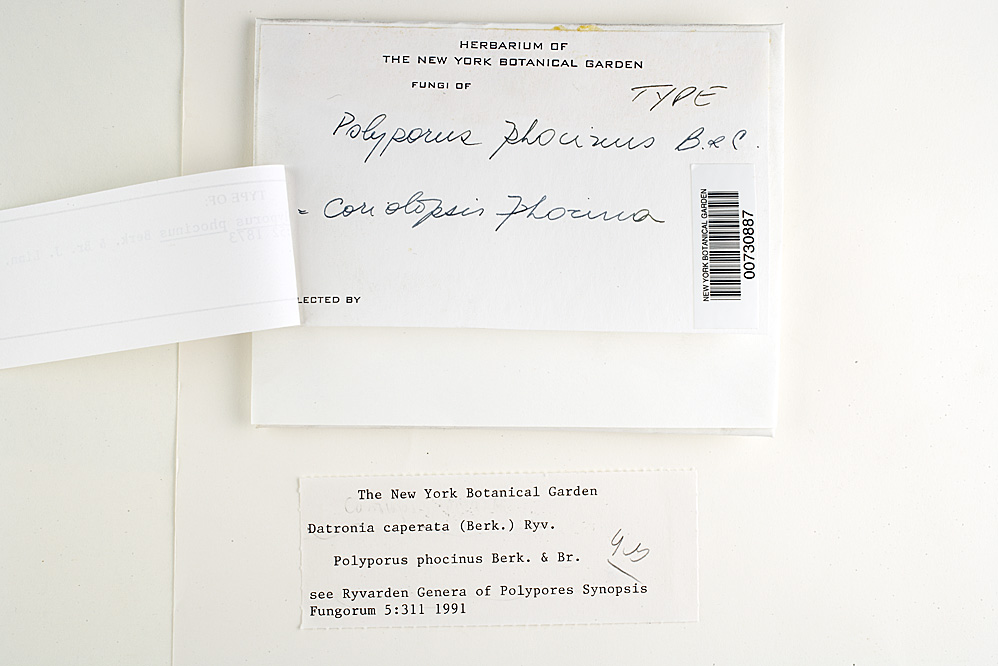 HERBARIUM OF
THE NEW YORK BOTANICAL GARDEN
FUNGI OF
TYPE
Polyporus phocinus B. & C.
= Coriolopsis phocina
LECTED BY
NEW YORK BOTANICAL GARDEN
00730887
TYPE OF:
phocinus Berk. & Br. J. Linn.
1873
The New York Botanical Garden
Datronia caperata (Berk.) Ryv.
Polyporus phocinus Berk. & Br.
see Ryvarden Genera of Polypores Synopsis
Fungorum 5:311 1991